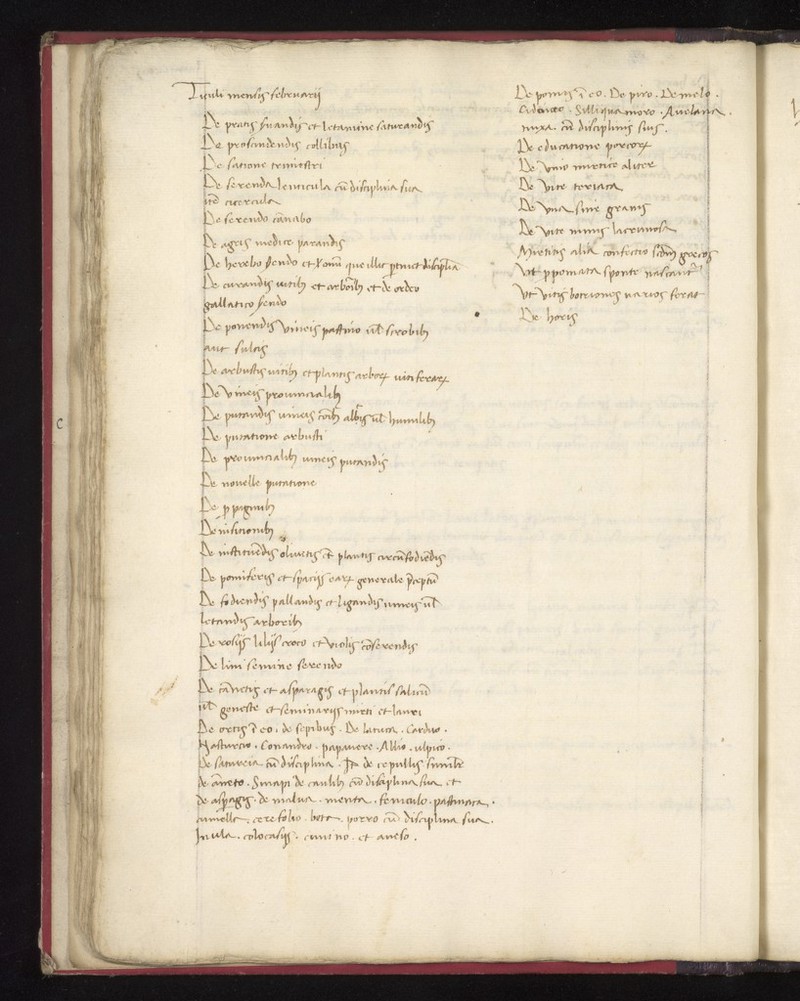 Tituli mensis februarij
De pratis s̄uandis et letamine saturandis
De proscindendis collibus
De satione tremestri
De serenda lenticula cū disciplina sua
itē cicercula
De serendo cānabo
De agris medice parandis
De herebo s̄endo et
De curandis uitibꝫ et arboribꝫ et de ordeo
gallatico s̄endo
De ponendis Vineis pastino ul̄ scrobibꝫ
aut sulcis
De arbustis uitibꝫ et plantis arboꝝ uitiferaꝝ
De Vineis prouincialibꝫ
De putandis uineis ul̄ humilibꝫ
De putatione arbusti
De prouincialibꝫ uineis putandis
De nouelle putatione
De ꝓpaginibꝫ
De insitionibꝫ
De instituēdis oliuetis et plantis circūfodiēdis
De pomiferis et spacijs eaꝝ generale p̄ceptū
De fodiendis pallandis et ligandis uineis ul̄
letandis arboribꝫ
De rosijs lilijs croco et Violis cōserendis
De lini semine serendo
De cānetis et asparagis et plantis salicū
ul̄ geneste et seminarijs mirti et lauri
De ortis ī eo. de sepibus. De latuca. Carduo.
Nasturcio. Coriandro. papauere. Allio. ulpico.
De satureia cū disciplina. de cepullis
de aneto. Sinapi de caulibꝫ cū disciplina sua et
de aspagis. de malua. menta. feniculo. pastinaca.
cunella. cerefolio. beta. porro cū disciplina sua.
Inula. colocasijs. cumino. et aneso.
De pomis ī eo. De piro. De melo.
Cidonee. Silliqua moro. Auelana.
nuxa. cū disciplinis suis.
De educatione porcoꝝ
De Vino mirtice aliter
De Vite teriaca
De Vua sine granis
De Vite nimis lacrimosa
Mirtitis alia confectio grecos
Vt ꝓpomata sponte nascant
Vt Vitis botriones uarios ferat
De horis
C